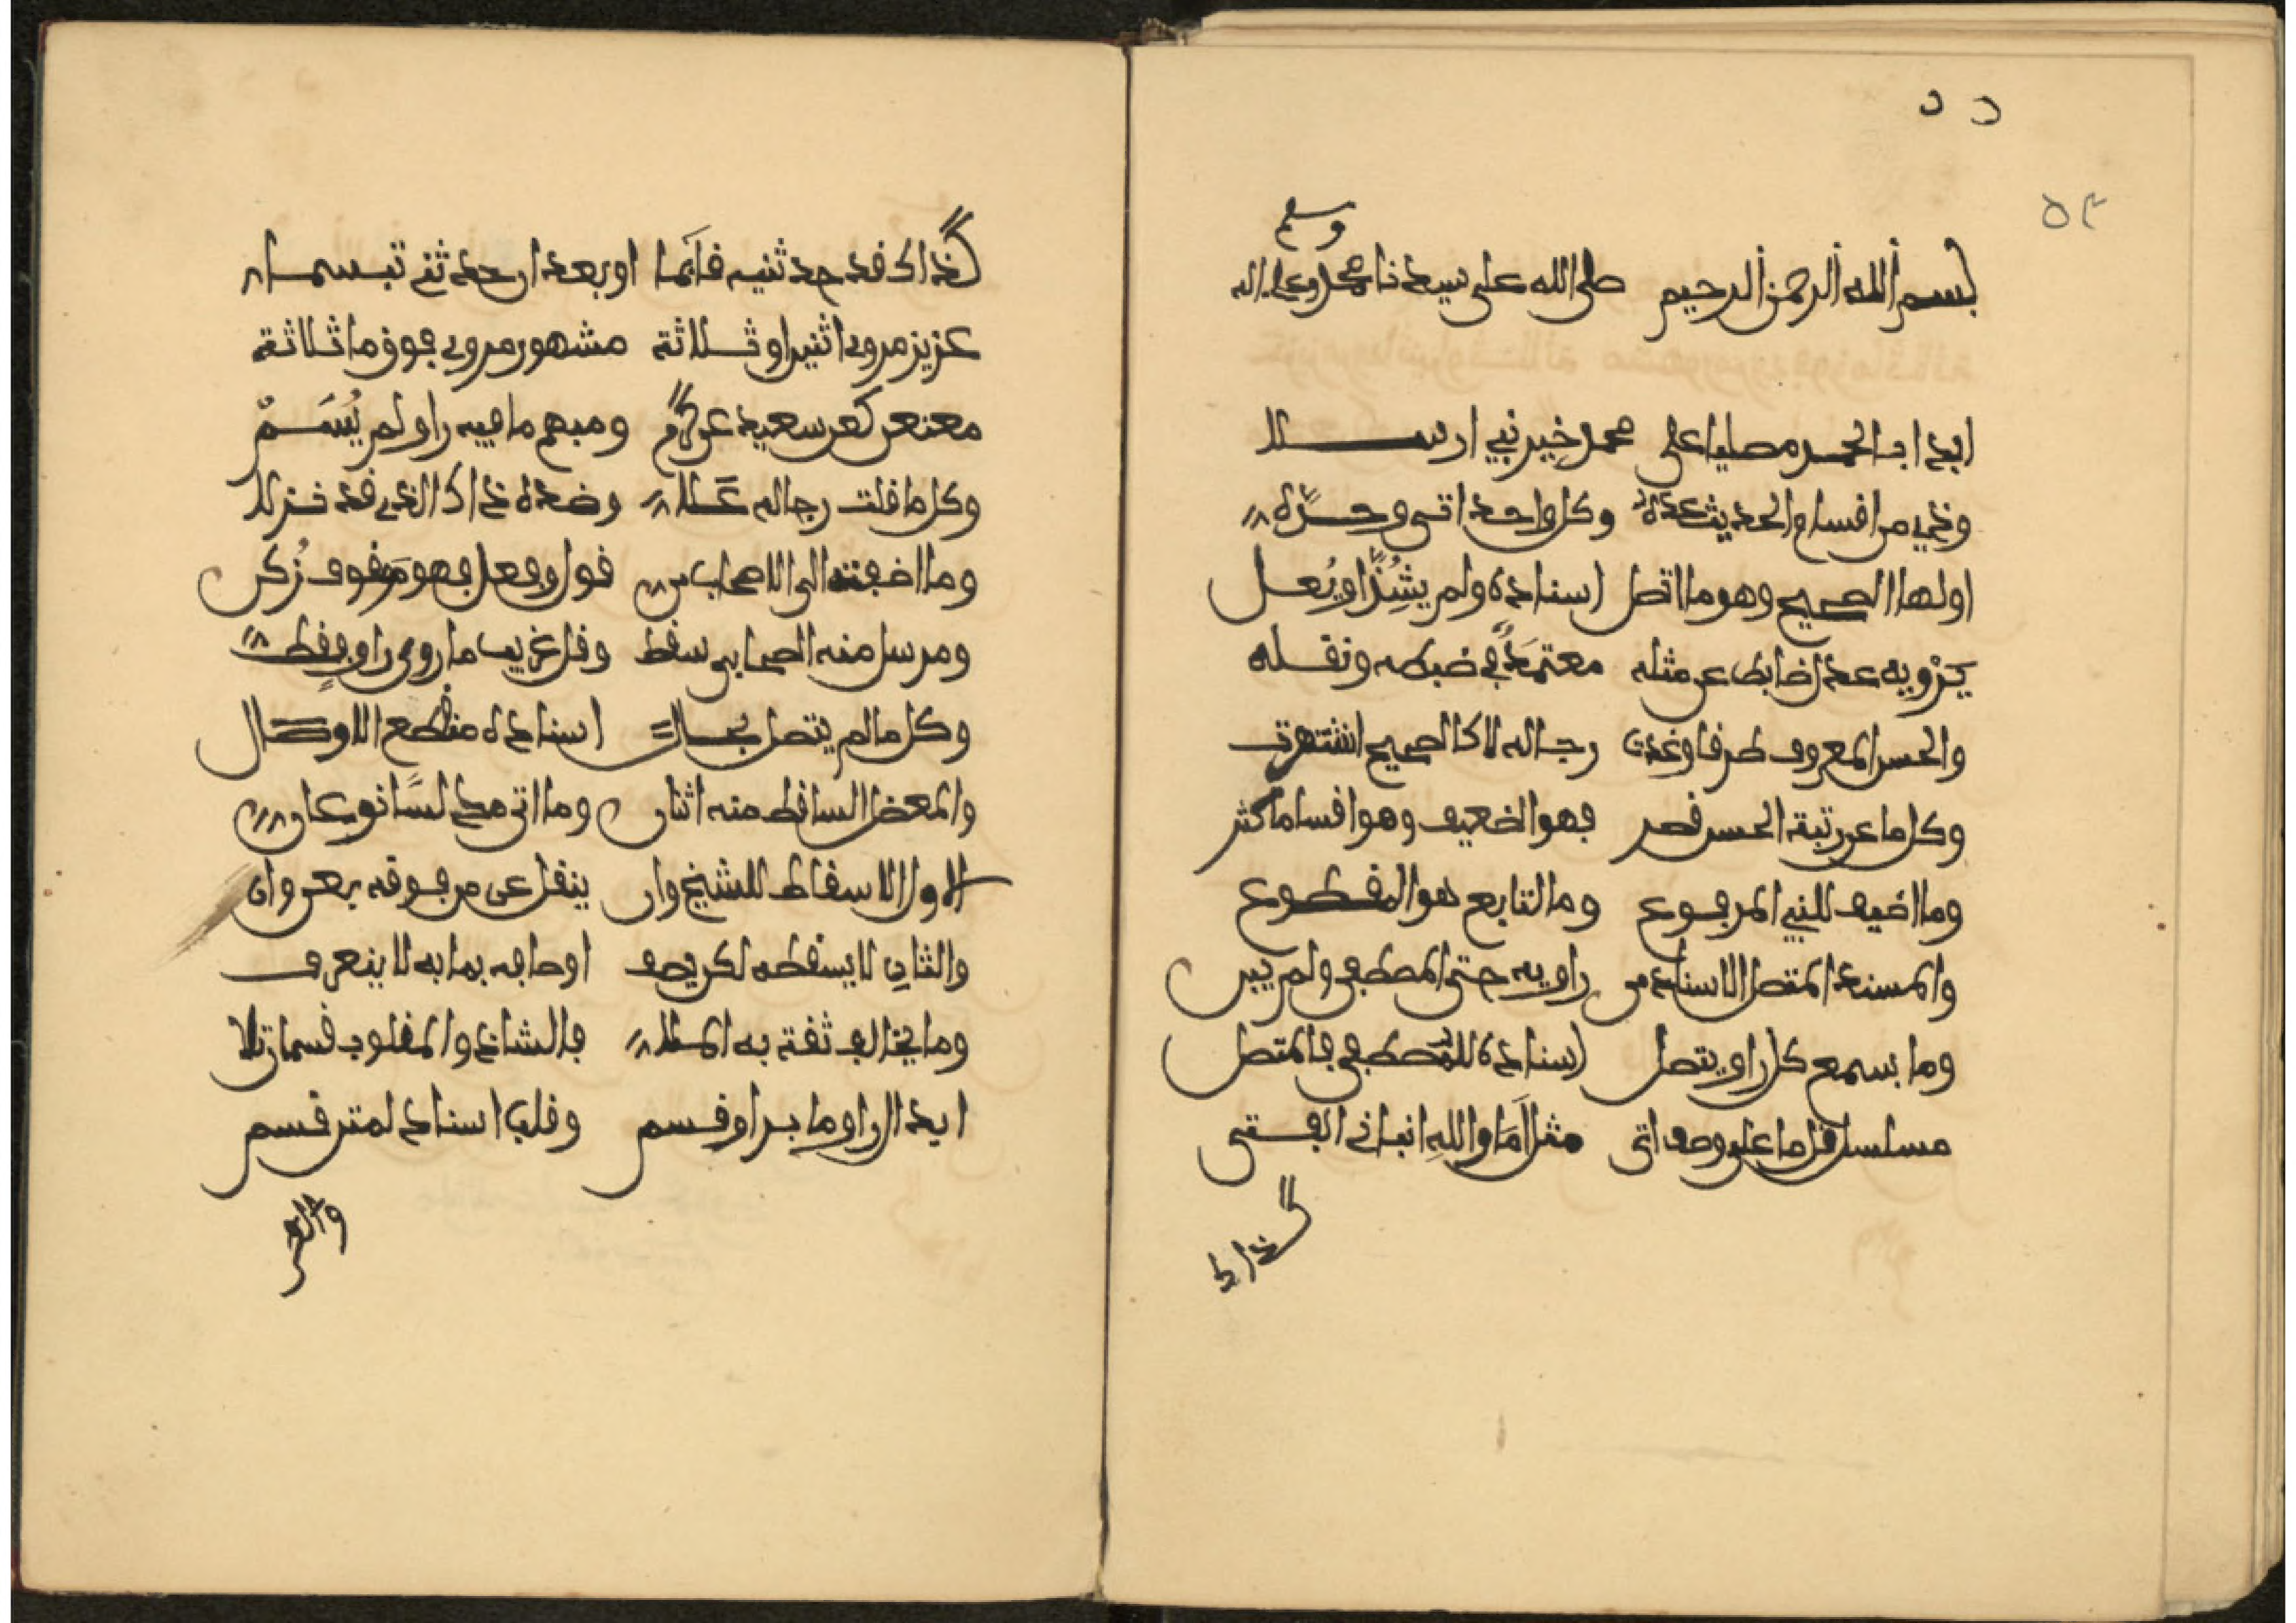 وسلم
بسم الله الرحمن الرحيم صلى الله على سيدنا محمد وعلى اله
ابدا بالحمد مصليا على محمد خير نبي ارسلا
وذي من اقسام الحديث عده وكل واحد اتى وحده
اولها الصحيح وهو ما اتصل اسناده ولم يشذ او يعل
يرويه عدل ضابط عن مثله معتمد في ضبطه ونقله
والحسن المعروف طرقا وغدت رجاله لا كالصحيح اشتهرت
وكل ما عن رتبة الحسن قصر فهو الضعيف وهو اقساما كثر
وما اضيف للنبي المرفوع وما لتابع هو المقطوع
والمسند المتصل الاسناد من راويه حتى المصطفى ولم يبن
وما بسمع كل راو يتصل اسناده للمصطفى فالمتصل
مسلسل قل ما على وصف اتى مثل أما والله انباني الفتى
كذاك
كذاك قد حدثنيه قائما او بعد ان حدثني تبسما
عزيز مروي اثنين او ثلاثة مشهور مروي فوق ما ثلاثة
معنعن كعن سعيد عن كرم ومبهم ما فيه راو لم يُسَمْ
وكل ما قلت رجاله عَلا وضده ذاك الذي قد نزلا
وما اضفته الى الاصحاب من قول وفعل فهو موقوف زُكن
ومرسل منه الصحابي سقط وقل غريب ما روى راو فقط
وكل ما لم يتصل بحال اسناده منقطع الاوصال
والمعضل الساقط منه اثنان وما اتى مدلسا نوعان
الاول الاسقاط للشيخ وان ينقل عن من فوقه بعن وان
والثاني لا يسقطه لكن يصف اوصافه بما به لا ينعرف
وما يخالف ثقة به الملا فالشاذ والمقلوب قسمان تلا
ابدال راو ما براو قسم وقلب اسناد لمتن قسم
والفرد